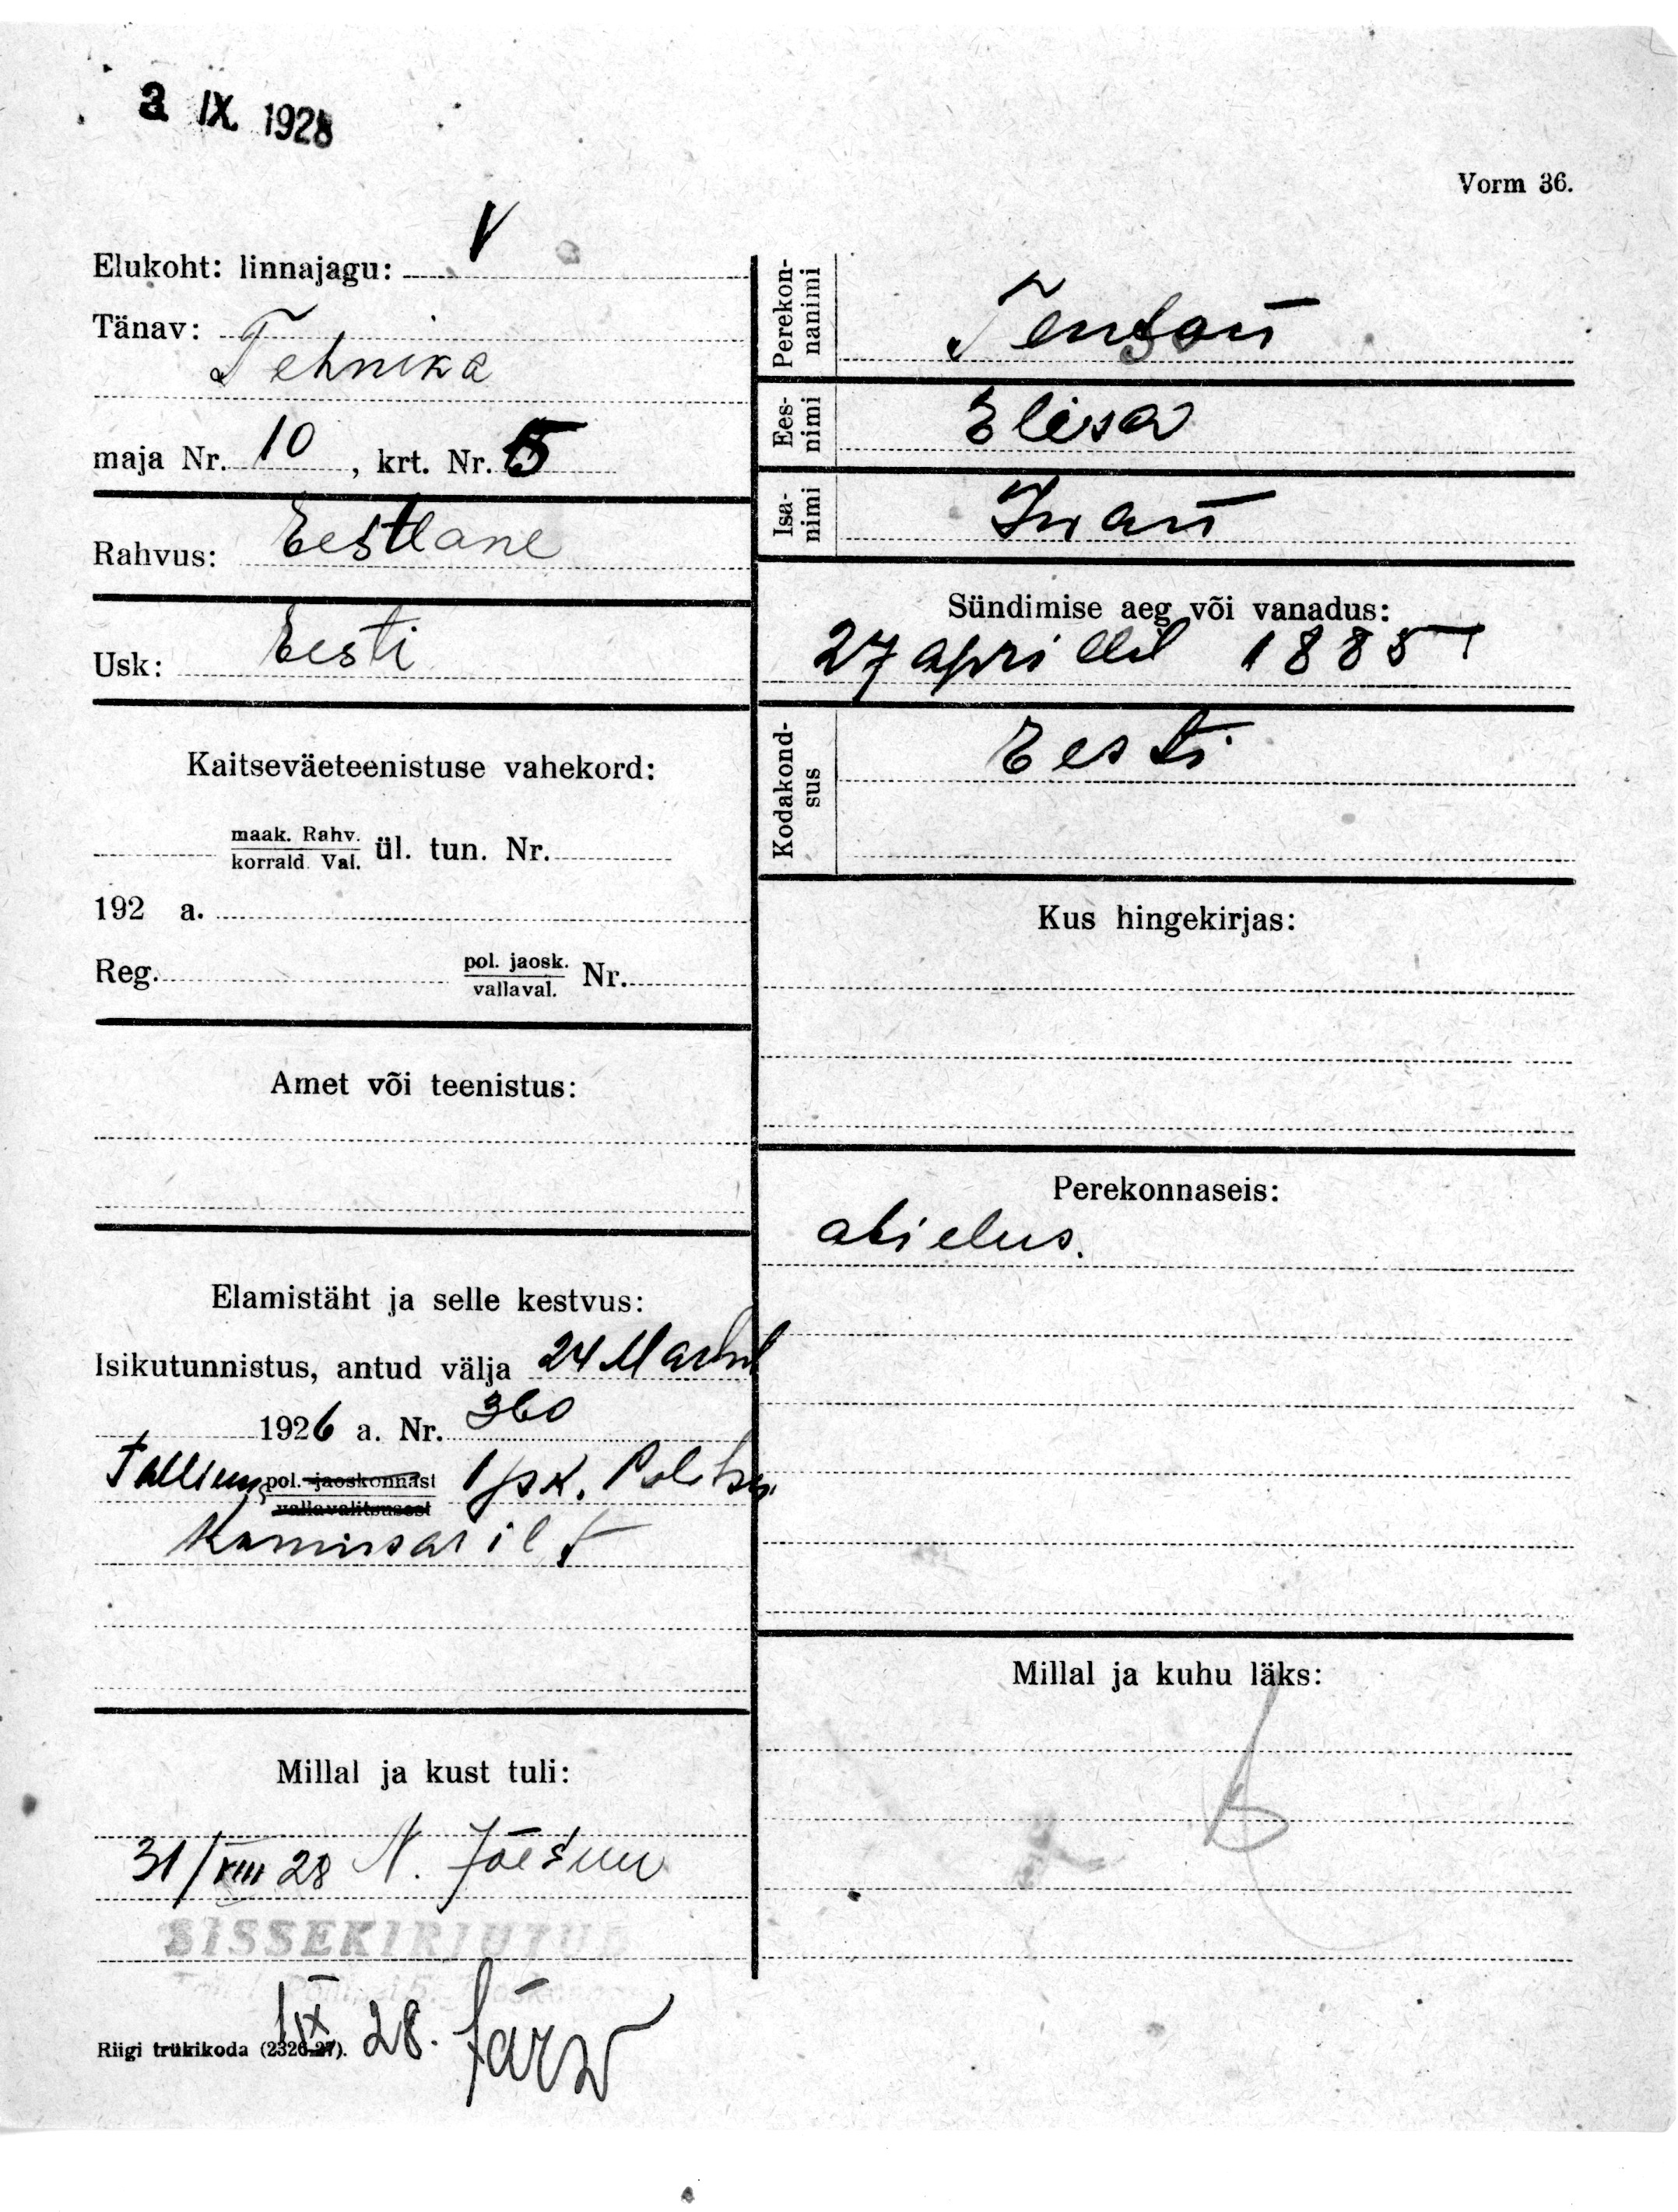 3 IX 1928
Vorm 36.
Elukoht: linnajagu: V
Tänav:
Tehnika
maja Nr. 10, krt. Nr. 5
Rahvus: Eestlane
Usk: Eesti
Kaitseväeteenistuse vahekord:
maak. Rahv.
korrald. Val. ül. tun. Nr.
192 a.
Reg. pol. jaosk.
vallaval. Nr.
Amet või teenistus:
Elamistäht ja selle kestvus:
Isikutunnistus, antud välja 24 Martsil
1926 a. Nr. 360
pol. jaoskonnast 1 jsk. Politsei
vallavalitsusest
Komissarilt
Millal ja kust tuli:
31/VIII 28 N. Jõesuu
SISSEKIRJUTUD
1 IX 28. Järw
Riigi trükikoda (2326-27).
Perekon-
nanimi
Ees-
nimi Elisa
Isa-
nimi Iwan
Sündimise aeg või vanadus:
27 aprillil 1885
Kodakond-
sus Eesti
Kus hingekirjas:
Perekonnaseis:
abielus.
Millal ja kuhu läks: